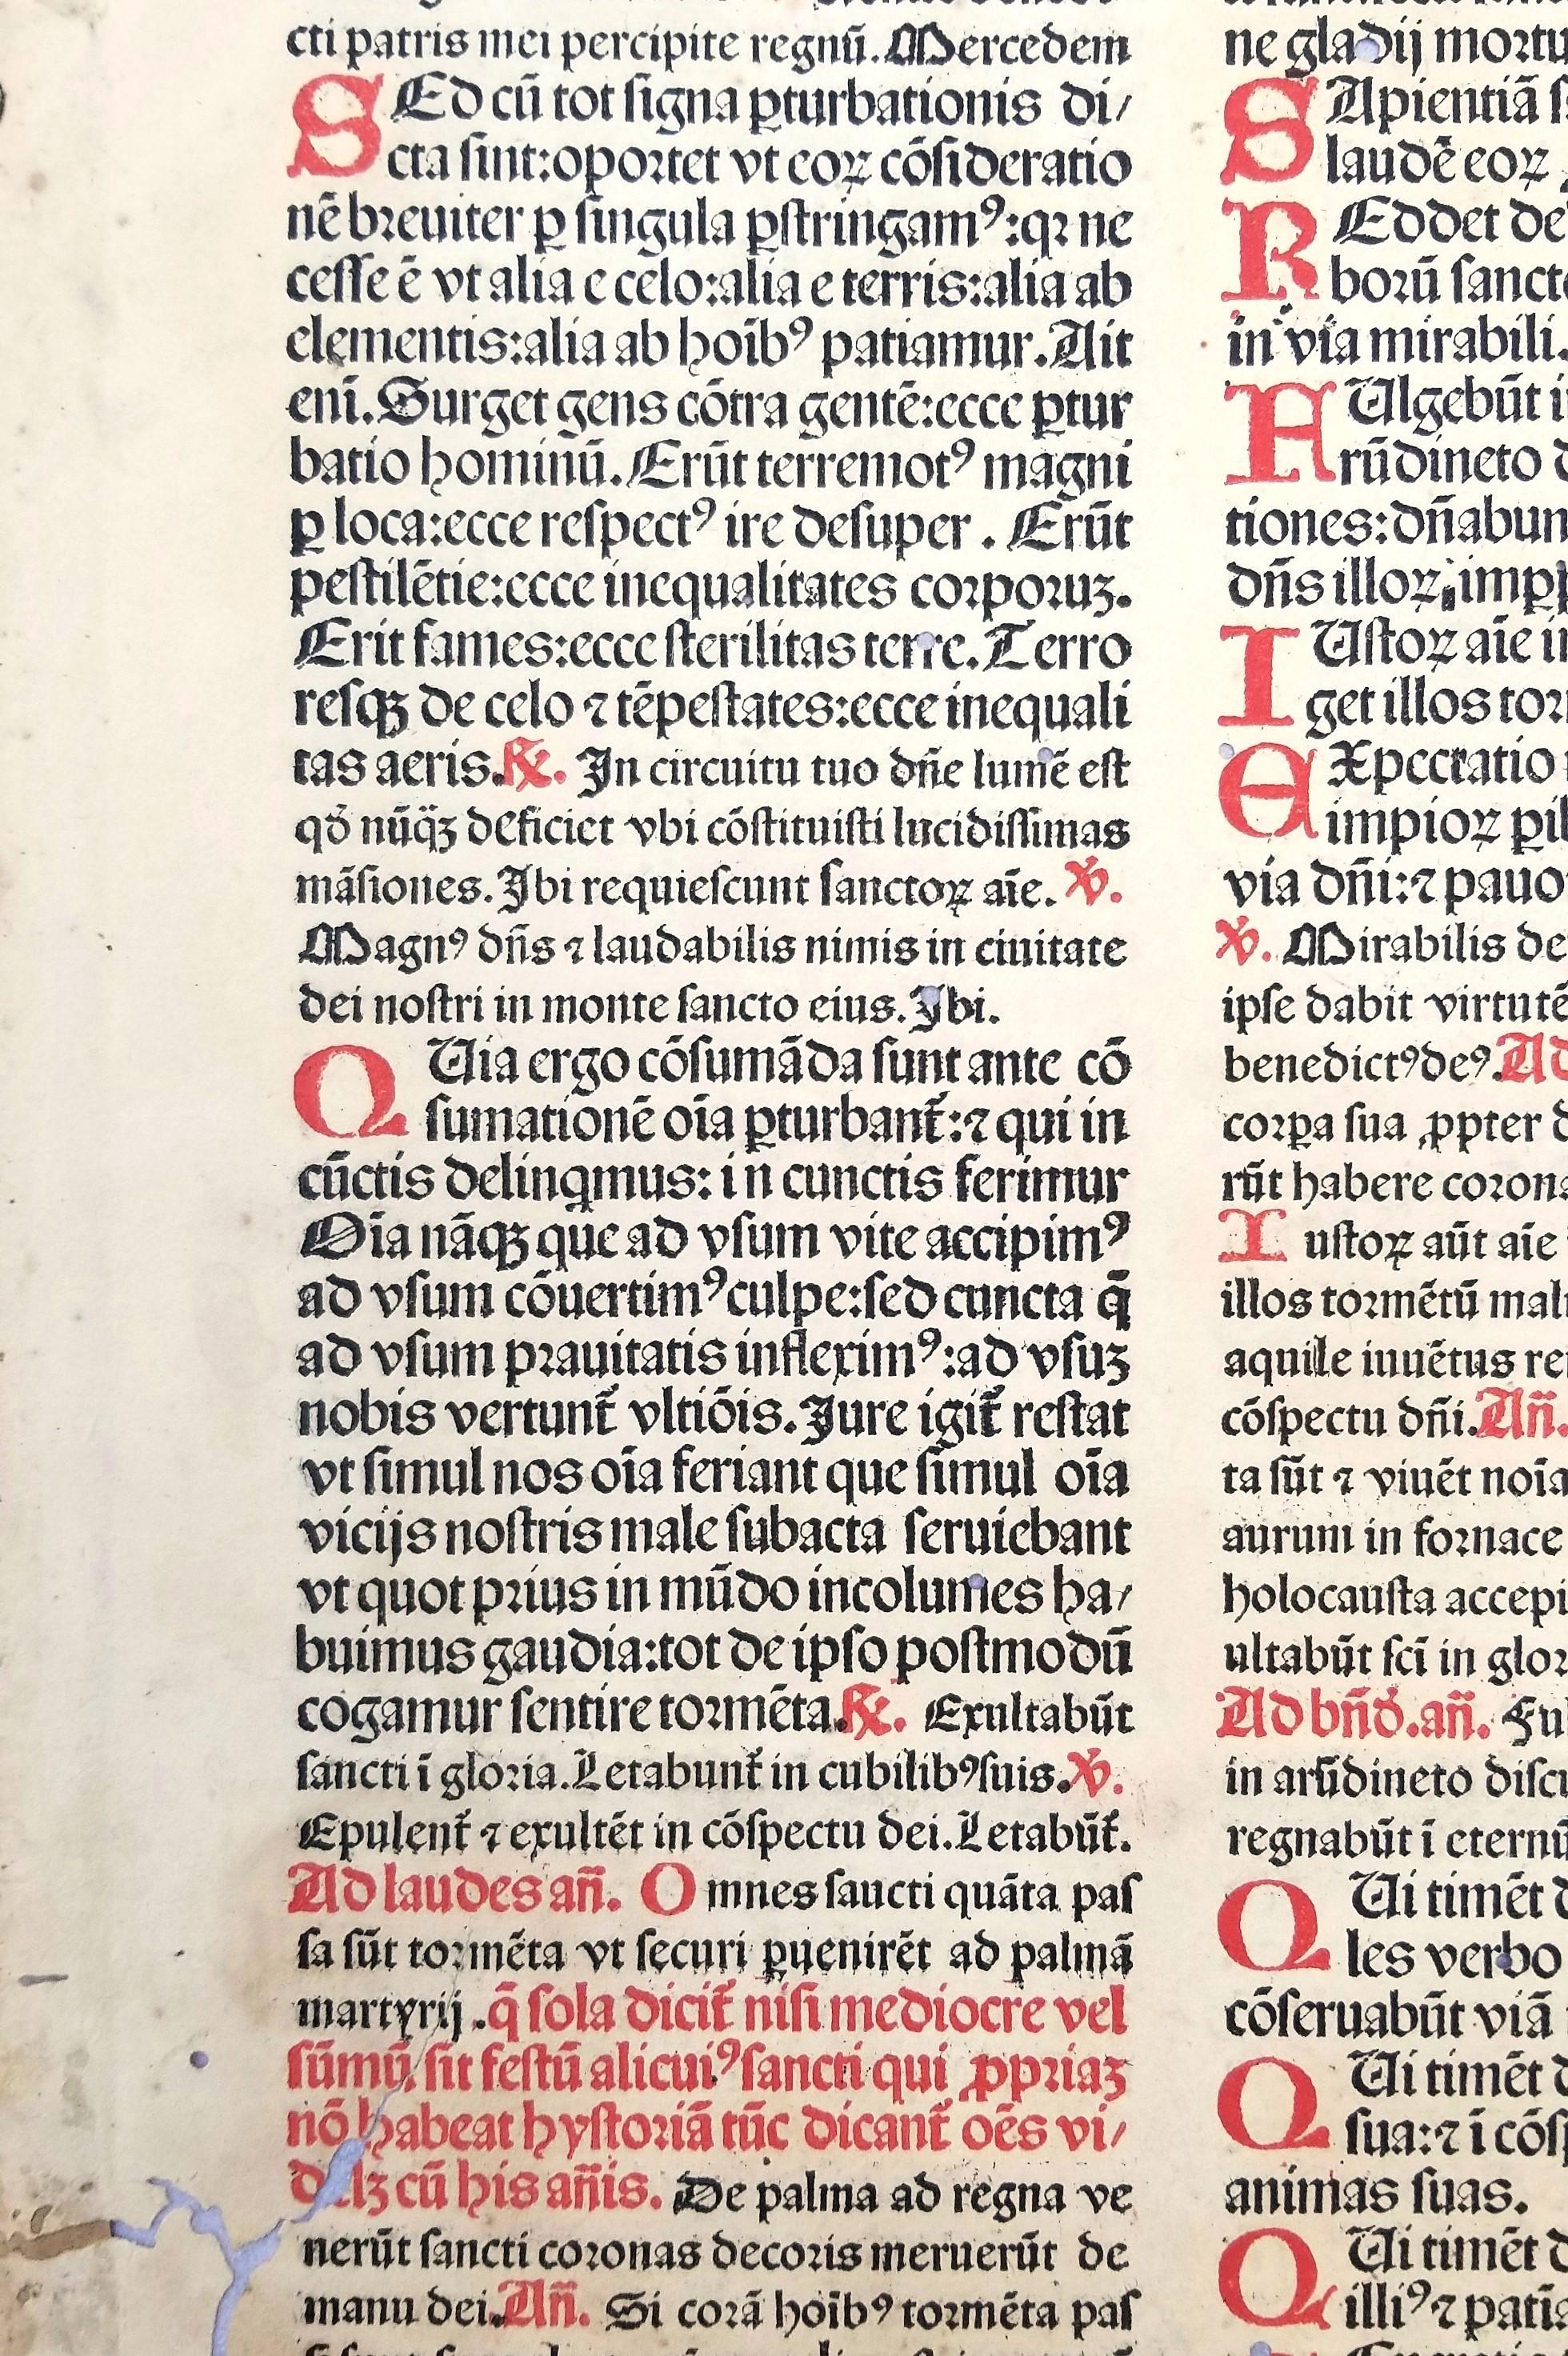 cti patris mei percipite regnū. Mercedem
SEd cū tot signa ꝑturbationis di/
cta sint: oportet vt eoꝝ cōsideratio
nē breuiter ꝑ singula ꝑstringamꝰ: qꝛ ne
cesse ē vt alia e celo: alia e terris: alia ab
elementis: alia ab hoībꝰ patiamur. Ait
eni. Surget gens cōtra gentē: ecce ꝑtur
batio hominū. Erūt terremotꝰ magni
ꝑ loca: ecce respectꝰ ire desuper. Erūt
pestilētie: ecce inequalitates corporuʒ.
Erit fames: ecce sterilitas terre. Terro
resqꝫ de celo ⁊ tēpestates: ecce inequali
tas aeris. ℟. In circuitu tuo dn̄e lumē est
qď nūq̈ꝫ deficiet vbi cōstituisti lucidissimas
māsiones. Ibi requiescunt sanctoꝝ aīe. ℣.
Magnꝰ dn̄s ⁊ laudabilis nimis in ciuitate
dei nostri in monte sancto eius. Ibi.
QUia ergo cōsumāda sunt ante cō
sumationē oīa ꝑturbant᷑: ⁊ qui in
cūctis delinqmus: in cunctis ferimur
Oīa nāqꝫ que ad vsum vite accipimꝰ
ad vsum cōuertimꝰ culpe: sed cuncta q̄
ad vsum prauitatis infleximꝰ: ad vsuʒ
nobis vertunt᷑ vltiōis. Jure igit᷑ restat
vt simul nos oīa feriant que simul oīa
vicijs nostris male subacta seruiebant
vt quot prius in mūdo incolumes ha/
buimus gaudia: tot de ipso postmodū
cogamur sentire tormēta. ℟. Exultabūt
sancti ī gloria. Letabunt᷑ in cubilibꝰ suis. ℣.
Epulent᷑ ⁊ exultēt in cōspectu dei. Letabūt᷑.
Ad laudes an̄. Omnes saucti quāta pas
sa sūt tormēta vt securi ꝑuenirēt ad palmā
martyrij. q̄ sola dicit᷑ nisi mediocre vel
sūmū sit festū alicuiꝰ sancti qui ꝓpriaʒ
nō habeat hystoriā tūc dicant᷑ oēs vi/
delꝫ cū his an̄is. De palma ad regna ve
nerūt sancti coronas decoris meruerūt de
manu dei. An̄. Si corā hoībꝰ tormēta pas
ne gladij mortu
SApientiā
laudē eoꝝ
REddet de
borū sanct
in via mirabili.
FUlgebūt
rūdineto
tiones: dn̄abun
dn̄s illoꝝ: imp
IUstoꝝ aīe
get illos tor
EXpectatio
impioꝝ ꝑi
via dn̄i: ⁊ pauo
℣. Mirabilis de
ipse dabit virtutē
benedictꝰ deꝰ. Ad
corꝑa sua ꝓpter
rūt habere corona
Iustoꝝ aūt aīe
illos tormētū mal
aquile iuuētus re
cōspectu dn̄i. An̄.
ta sūt ⁊ viuēt noīa
aurum in fornace
holocausta accepi
ultabūt scī in glor
Ad bn̄ď. an̄. Fu
in arūdineto discu
regnabūt ī eternū
QUi timēt
les verbo
cōseruabūt viā
QUi timēt
sua: ⁊ ī cōs
animas suas.
QUi timēt
illiꝰ ⁊ patiē